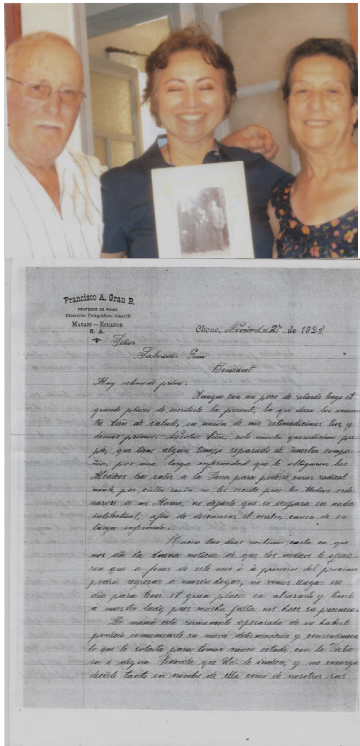 Francisco A. Grau B.
PROFESOR DE PIANO
Dirección Telegráfica: GRAUB
MANABI—ECUADOR
S. A.
Chone, de 1938
Señor
Salvador Grau
Benissanet
Muy estimado primo:
Aunque con un poco de retardo tengo el
grande placer de escribirle la presente, la que deseo los encuen
tre bien de salud, en unión de mis estimadísimos tíos y
demás primos. Nosotros bien, solo nuestro queridísimo pa-
pá, que hace algún tiempo separado de nuestra compa-
ñia, por una larga enfermedad que le obligaron los
Médicos ha salir a la Sierra para poderse curar radical
mente, por cuya razón no les escribe pues los Médicos orde
naron a mi Mamá, no dejarlo que se ocupara en nada
intelectual, afin de descansar el cerebro, causa de su
larga enfermedad.
Hacen tres dias recibimos carta en que
nos dá la buena noticia de que los médicos le ofrecie
ron que a fines de este mes o a primeros del proximo
podrá regresar a nuestro hogar, no vemos llegar ese
día para tener el gran placer en abrazarlo y tenerlo
a nuestro lado, pues mucha falta nos hace su presencia.
Mi mamá está sumamente apesarada de no haberle
podido comunicarle su nueva determinación y concediendo
lo que le solicita para tomar nuevo estado con la Seño
ra é digna que Ud. le indica, y me encarga
decirle tanto en nombre de ella como de nosotros sus